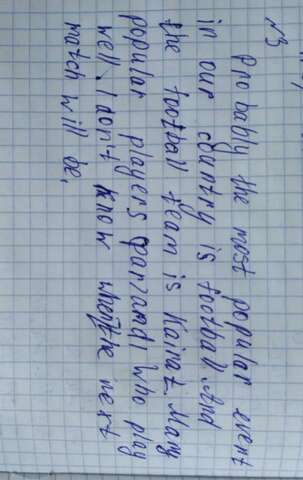 №3
Probably the most popular event
in our country is football. And
the football team is Kairat. Many
popular players (panzand) who play
well. I don't know when the next
match will be.